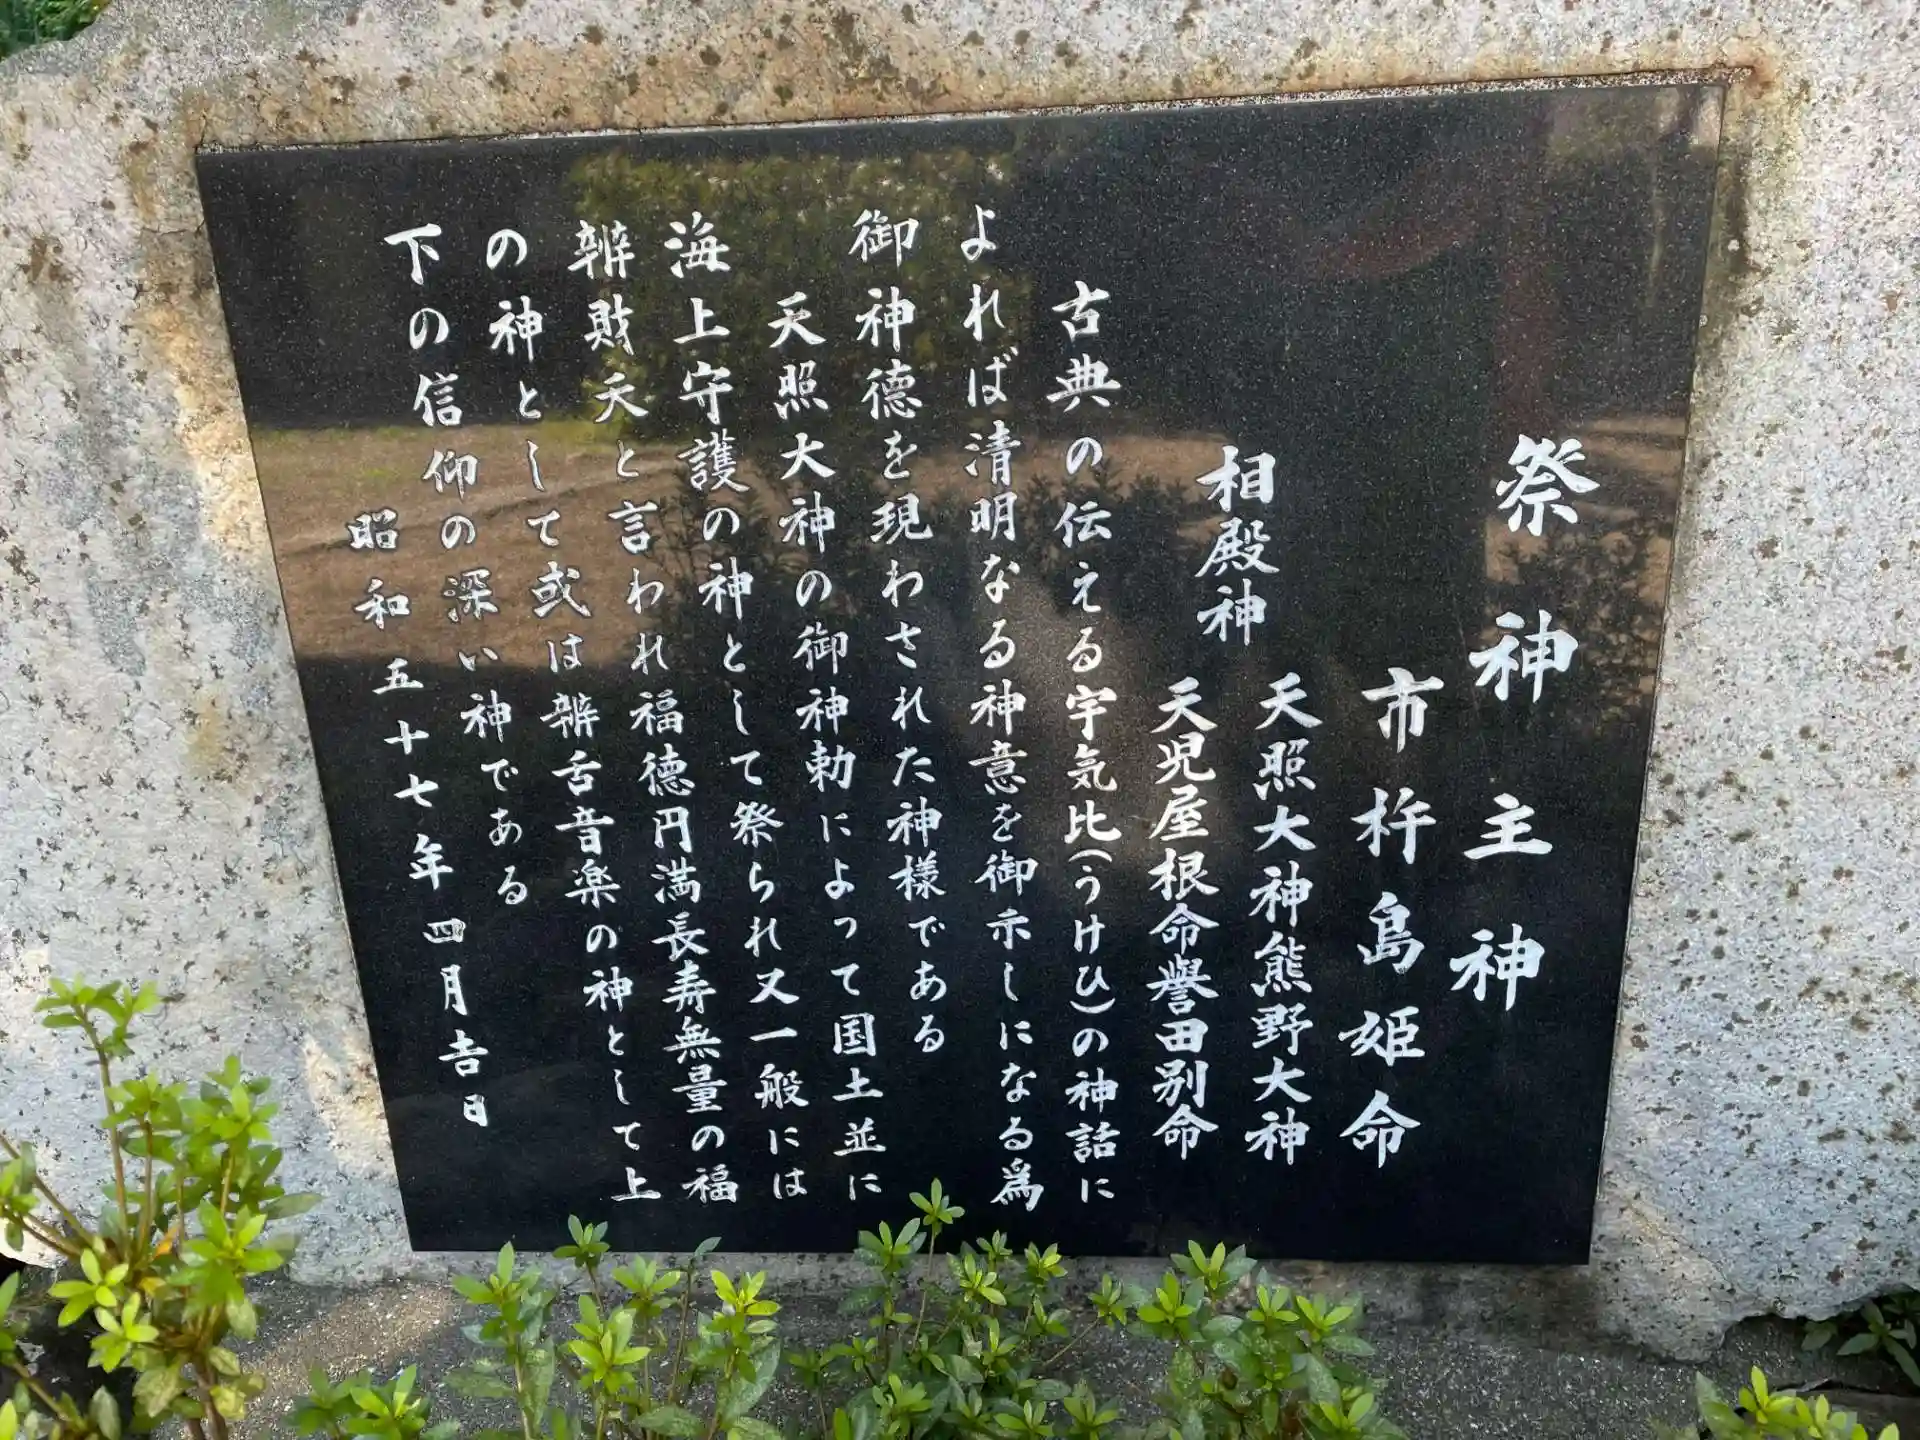 祭神主神
市杵島姫命
相殿神
天照大神熊野大神
天児屋根命誉田別命
古典の伝える宇気比(うけひ)の神話に
よれば清明なる神意を御示しになる爲
御神徳を現わされた神様である
天照大神の御神勅によって国土並に
海上守護の神として祭られ又一般には
辨財天と言われ福徳円満長寿無量の福
の神として或は辨舌音楽の神として上
下の信仰の深い神である
昭和五十七年四月吉日